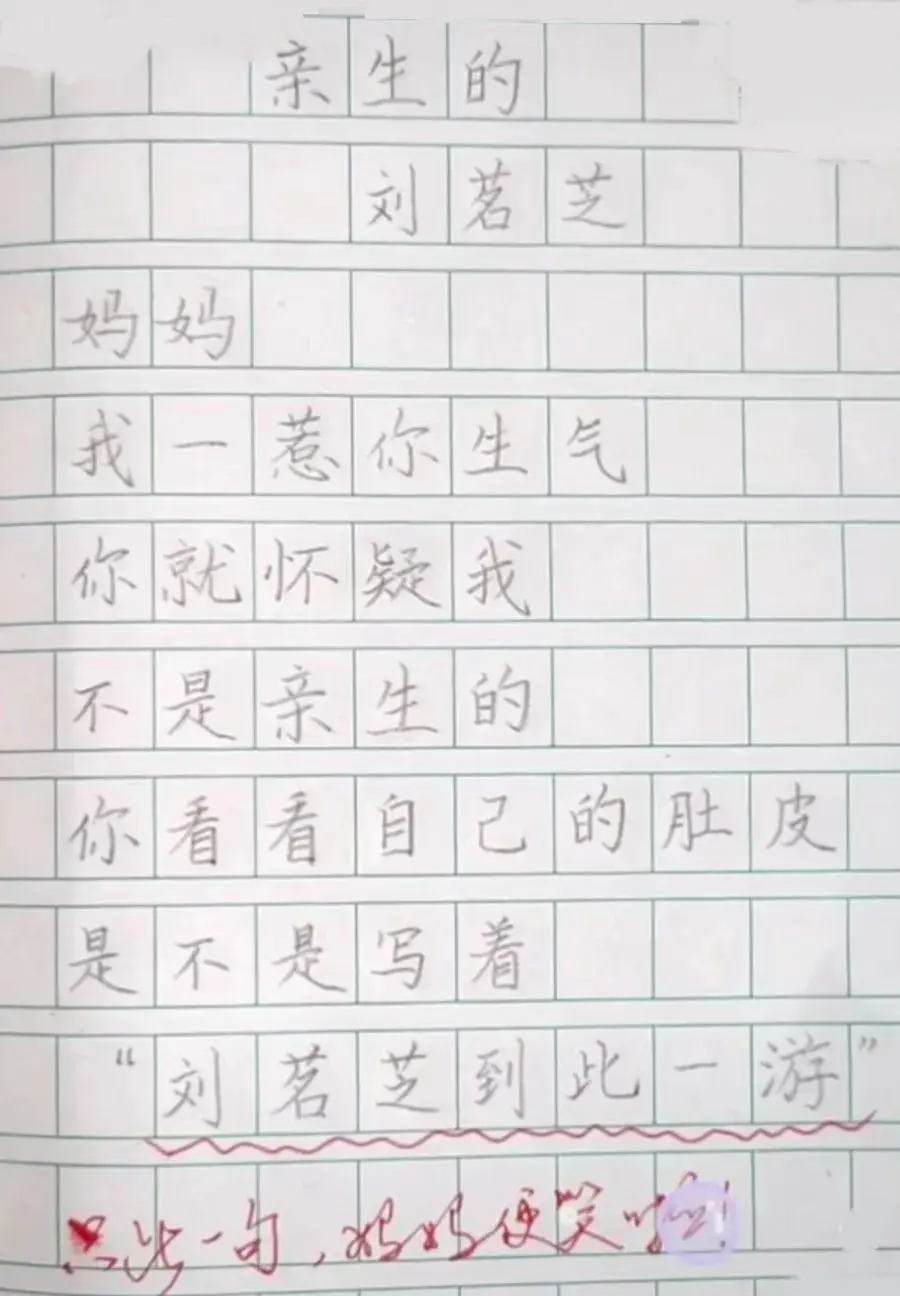 亲生的
刘茗芝
妈妈
我一惹你生气
你就怀疑我
不是亲生的
你看看自己的肚皮
是不是写着
“刘茗芝到此一游”
只此一句，妈妈便笑